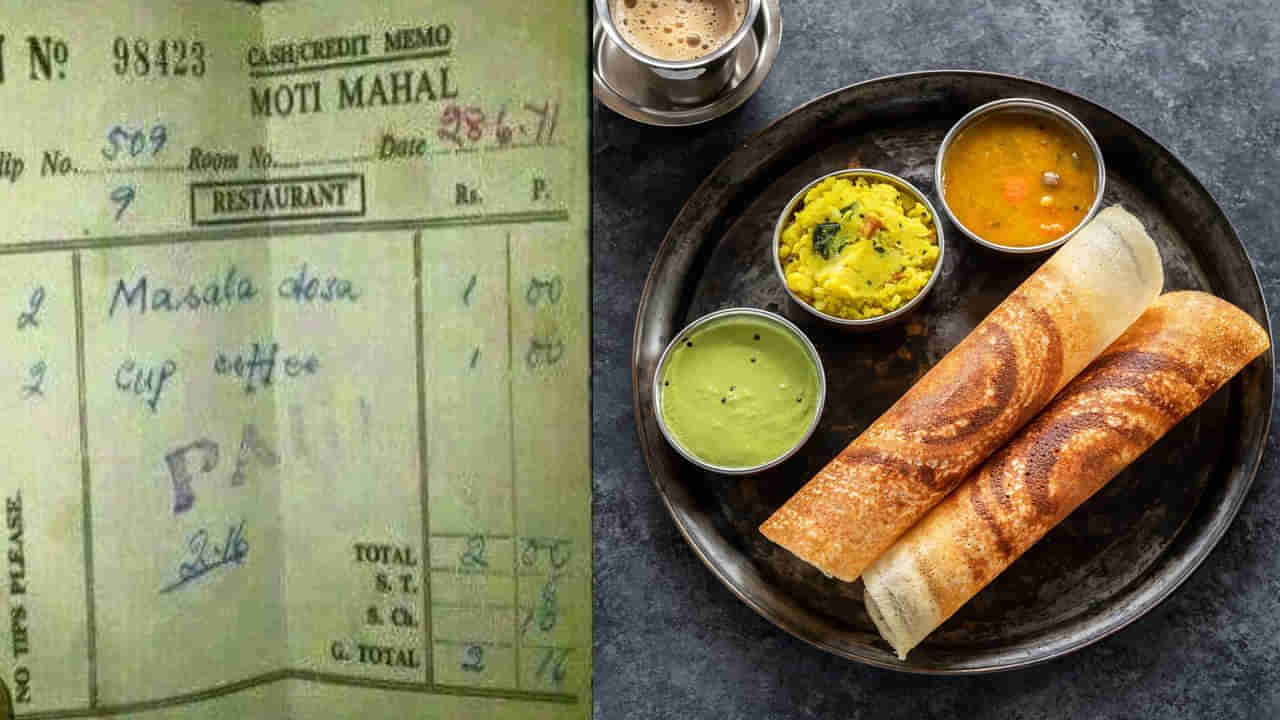 N Nº 98423 CASH/CREDIT MEMO
MOTI MAHAL
lip No. 509 Room No. Date 28.6.71
9 RESTAURANT Rs. P.
2 Masala dosa 1 00
2 cup coffee 1 00
PAID
2.16
TOTAL 2 00
S. T.
S. Ch.
G. TOTAL 2 16
NO TIPS PLEASE.